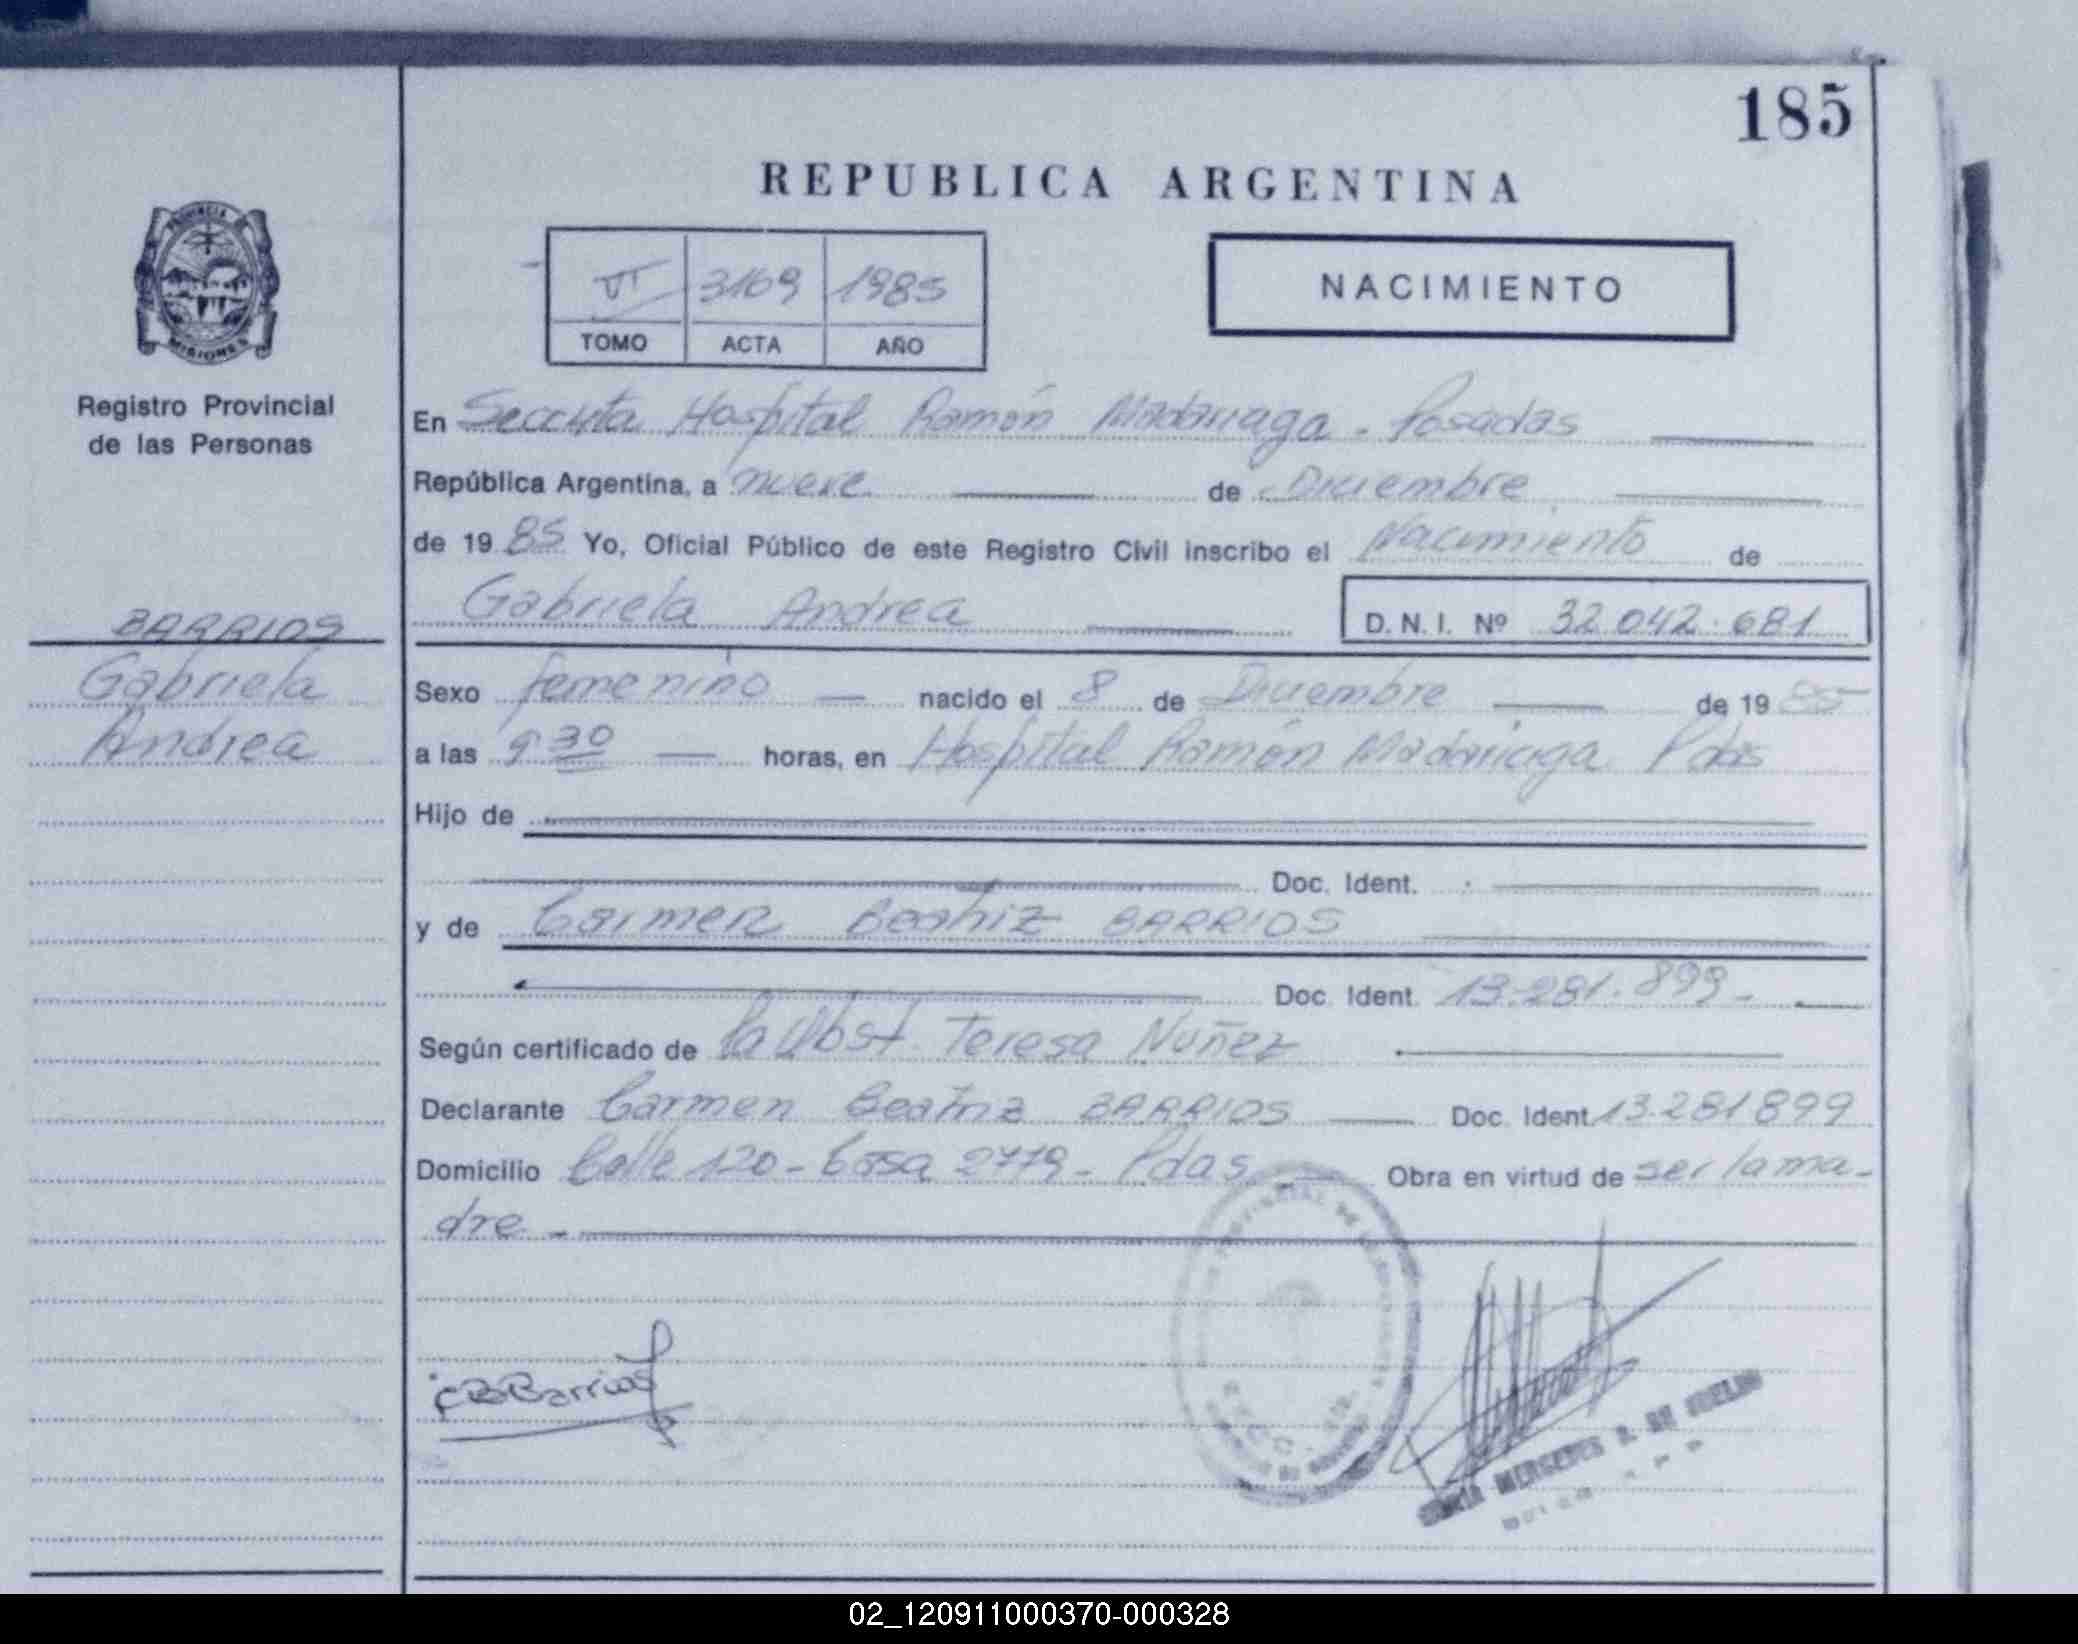 185
REPUBLICA ARGENTINA
PROVINCIA
MISIONES
Registro Provincial
de las Personas
VI 3169 1985
TOMO ACTA AÑO
NACIMIENTO
En Seccta Hospital Ramón Madariaga - Posadas
República Argentina, a nueve de Diciembre
de 19 85 Yo, Oficial Público de este Registro Civil inscribo el Nacimiento de
Gabriela Andrea D.N.I. Nº 32.042.681
BARRIOS
Gabriela
Andrea
Sexo femenino nacido el 8 de Diciembre de 19 85
a las 9 30 horas, en Hospital Ramón Madariaga Pdas
Hijo de
Doc. Ident.
y de Carmen Beatriz BARRIOS
Doc. Ident. 13.281.899-
Según certificado de la Obst. Teresa Nuñez
Declarante Carmen Beatriz BARRIOS Doc. Ident. 13.281899
Domicilio Calle 120 - Casa 2779 - Pdas Obra en virtud de ser la ma-
dre -
CBBarrios
MERCEDES
02_120911000370-000328